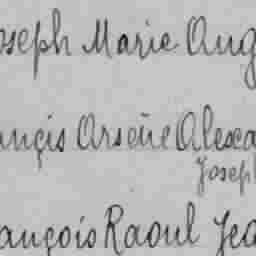 oseph Marie Aug
ançis Arsène Alexa
Joseph
ançois Raoul Jea